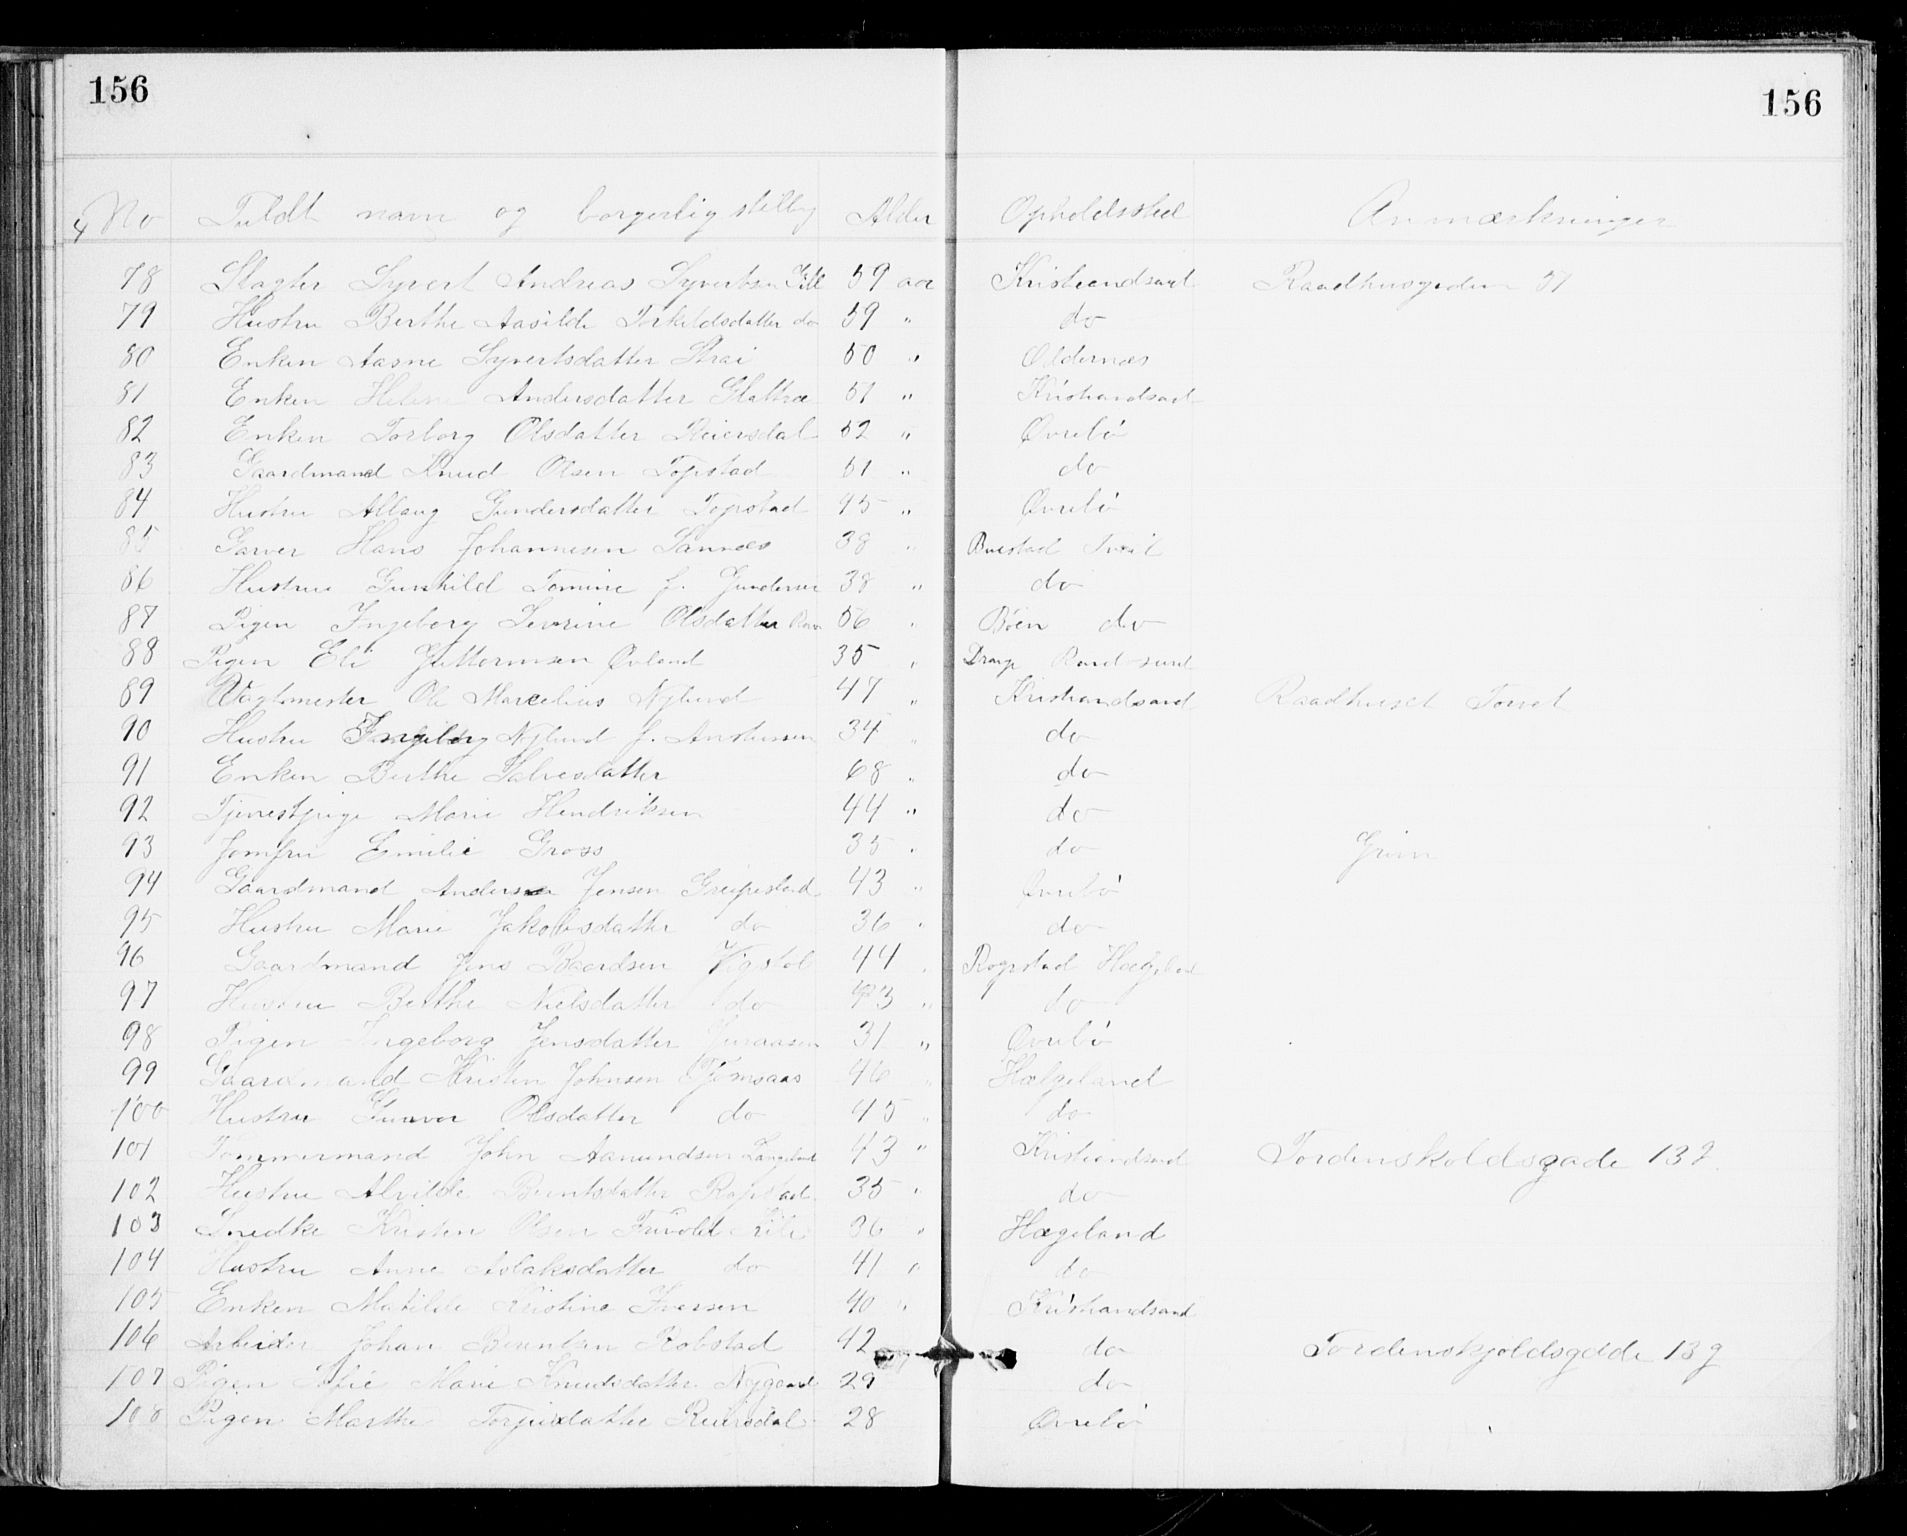 156
156
No Fuldt navn og borgerlig stillg Alder Opholdssted Anmærkninger
78 Slagter Syvert Andreas Syvertsen 59 aar Kristiandsand Raadhusgaden 51
79 Hustru Berthe Aasilde Torkildsdatter do 59 " do
80 Enken Aasne Syvertsdatter Strai 50 " Oddernes
81 Enken Helene Andersdatter Slattræ 51 " Kristiandsand
82 Enken Torborg Olsdatter Reiersdal 52 " Øvrebö
83 Gaardmand Knud Olsen Topstad 51 " do
84 Hustru Allaug Gundersdatter Topstad 45 " Øvrebö
85 Garver Hans Johannesen Sannes 38 " Buestad Tveit
86 Hustru Gunhild Tomine f. Gundersen 38 " do
87 Pigen Ingeborg Severine Olsdatter 56 " Böen do
88 Pigen Eli Guttormsen Øvland 35 " Drange Randesund
89 Vagtmester Ole Marcelius Nylund 47 " Kristiandsand Raadhuset Torvet
90 Hustru Ingeborg Nylund f. Anstensen 34 " do
91 Enken Berthe Salvesdatter 68 " do
92 Tjenestpige Marie Hendriksen 44 " do
93 Jomfru Emilie Gross 35 " do Grim
94 Gaardmand Anders Jensen Greipestad 43 " Øvrebö
95 Hustru Marie Jakobsdatter do 36 " do
96 Gaardmand Jens Baardsen Vigstöl 44 " Ropstad Hægeland
97 Hustru Berthe Nielsdatter do 43 " do
98 Pigen Ingeborg Jensdatter 31 " Øvrebö
99 Gaardmand Kristen Johnsen Tjomsaas 46 " Hægeland
100 Hustru Gunvor Olsdatter do 45 " do
101 Tømmermand John Aanundsen Langeland 43 " Kristiandsand Tordenskoldsgade 139
102 Hustru Alvilde Berntsdatter Ropstad 35 " do
103 Snedke Kristen Olsen Frivold 36 " Hægeland
104 Hustru Anne Aslaksdatter do 41 " do
105 Enken Matilde Kristine Iversen 40 " Kristiandsand
106 Arbeider Johan Berentsen Robstad 42 do Tordenskjoldsgade 139
107 Pigen Sofie Marie Knudsdatter Nygaard 29 do
108 Pigen Marthe Torjusdatter Reiersdal 28 Øvrebö